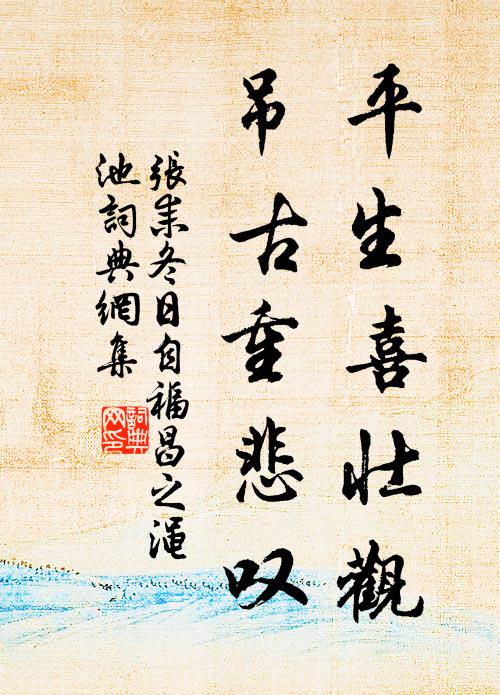 平生喜壮觀
吊古重悲叹
張耒冬日自福昌之渑
池詞典網集
詞典
网印